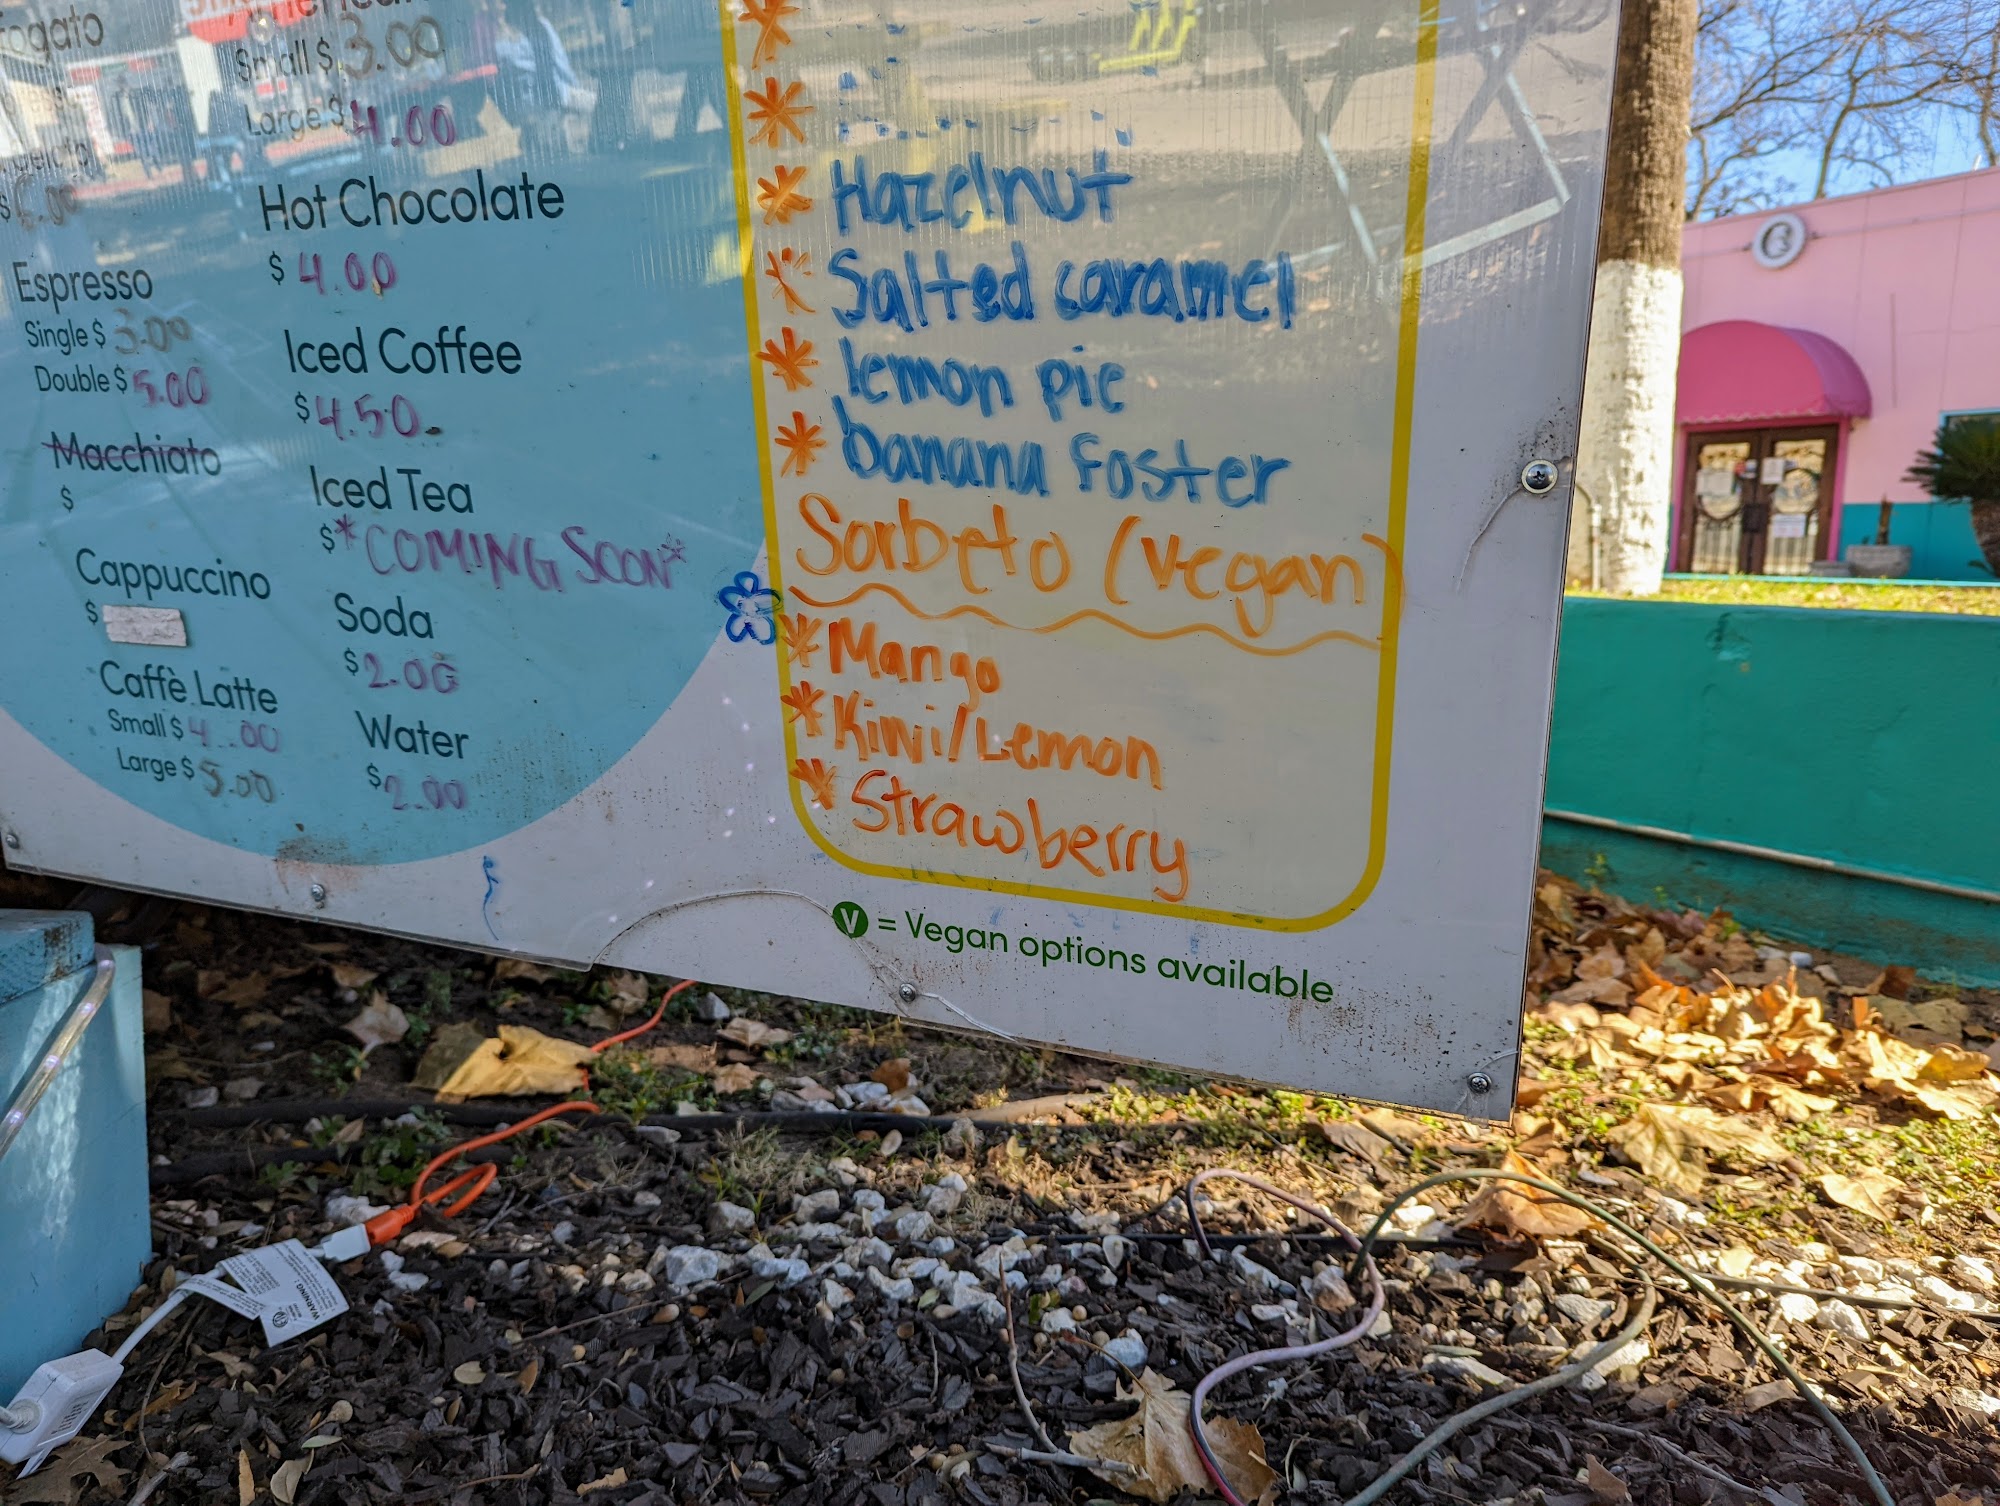 Small $ 3.00
Large $ 4.00
$ 6.00
Espresso
Single $ 3.00
Double $ 5.00
Macchiato
$
Cappuccino
$
Caffè Latte
Small $ 4.00
Large $ 5.00
Hot Chocolate
$ 4.00
Iced Coffee
$ 4.50
Iced Tea
$ *COMING SOON*
Soda
$ 2.00
Water
$ 2.00
* Hazelnut
* Salted caramel
* lemon pie
* banana Foster
Sorbeto (vegan)
* Mango
* Kiwi/Lemon
* Strawberry
V = Vegan options available
WARNING